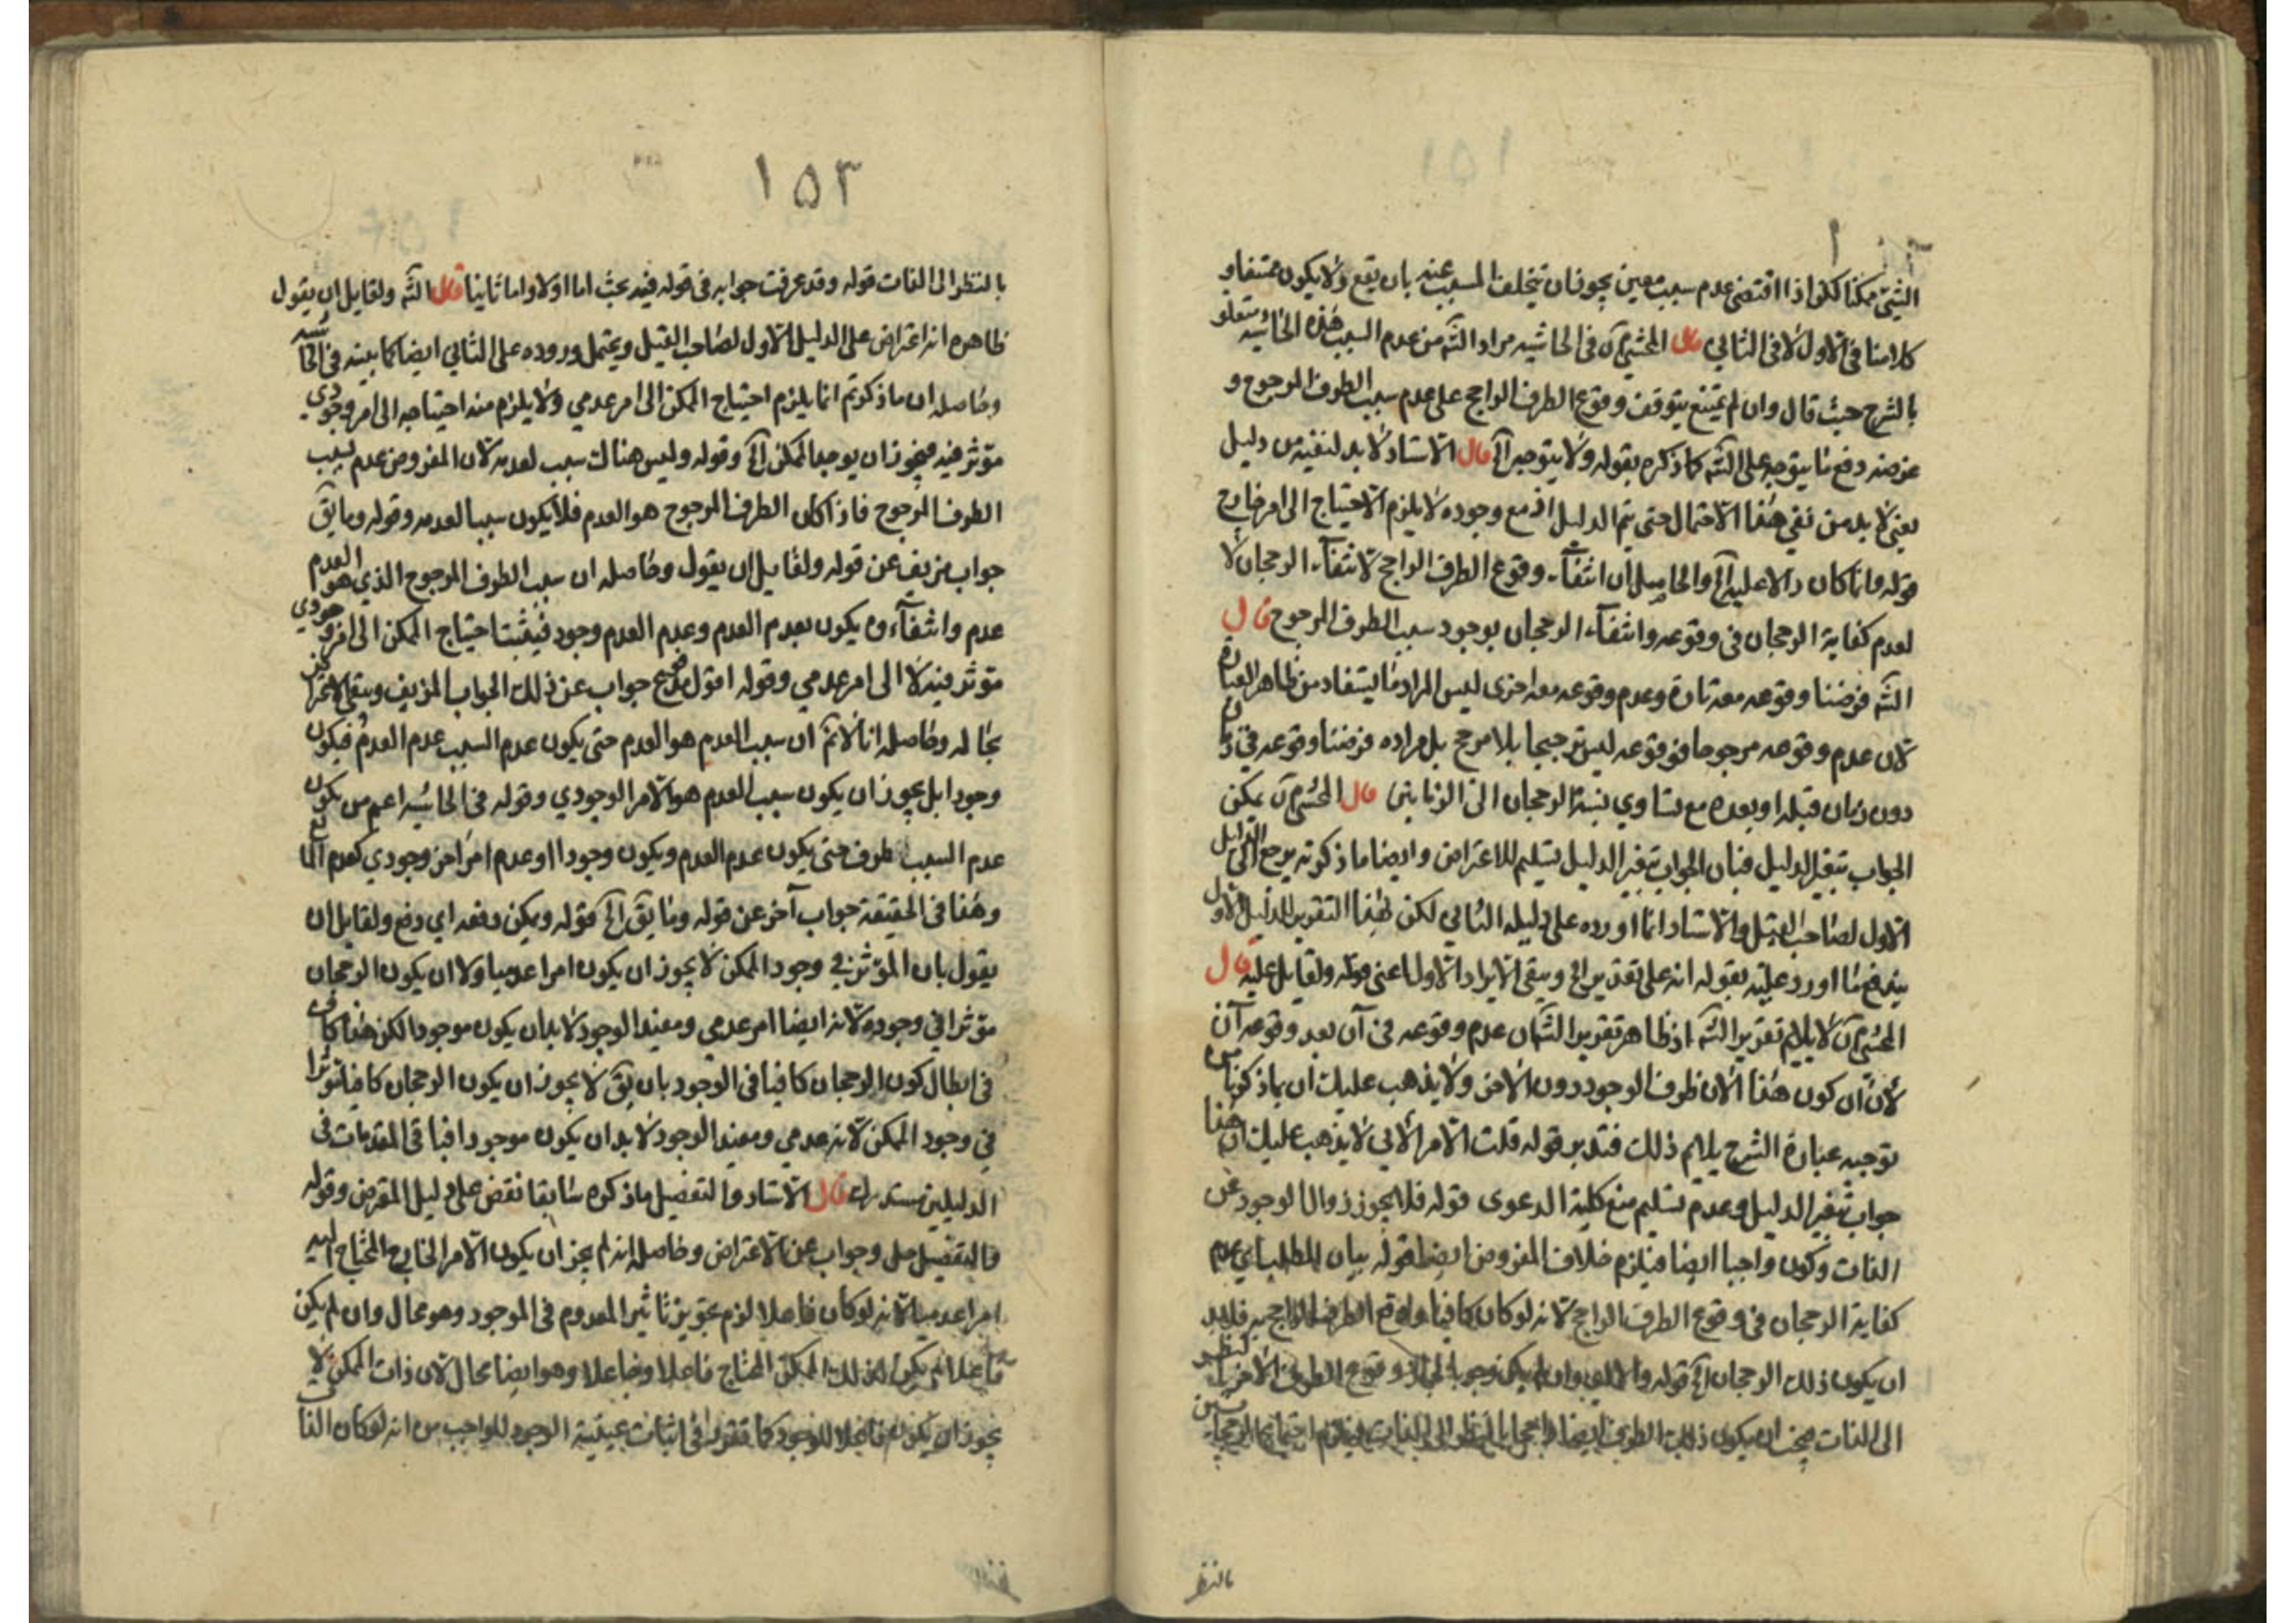 الشئ ممكنا ككلواذا اقتضى عدم سبب معين يجوز ان يتخلف المسبب عنه بان يقع ولا يكون ممتنعا و
كلامنا فى الاول لا فى الثاني قال المحشى آن فى الحاشيه مراد الشه من عدم السبب هذه الحاشيه متعلق
بالشرح حيث قال وان لم يمتنع يتوقف وقوع الطرف الراجح على عدم سبب الطرف المرجوح و
غرضه دفع ما يتوجه على الشه كما ذكره بقوله ولا يتوجه آلخ قال الاستاد لا بد لنفيه من دليل
يعنى لا بد من نفي هذا الاحتمال حتى يتم الدليل اذ مع وجوده لا يلزم الاحتياج الى امر خارج
قوله وانما كان دالا عليه آلخ والحاصل ان انتفآء وقوع الطرف الراجح لانتفآء الرحجان لا
لعدم كفاية الرحجان فى وقوعه وانتفآء الرحجان بوجود سبب الطرف المرجوح قال
الشه فرضنا وقوعه معه تارة وعدم وقوعه معه اخرى ليس المراد ما يستفاد من ظاهر العبارة
لان عدم وقوعه مرجوحا فوقوعه ليس ترجيحا بلا مرجح بل مراده فرضنا وقوعه في زمان
دون زمان قبله او بعده مع تساوي نسبة الرحجان الى الزمانين قال المحشى آن يمكن
الجواب بتغير الدليل فبان الجواب بتغير الدليل تسليم للاعتراض وايضا ما ذكرته يرجع الى الدليل
الاول لصاحب القيل والاستاد انما اورده على دليله الثاني لكن بهذا التقرير للدليل الاول
يندفع ما اورد عليه بقوله انه على تقدير الخ ويبقى الايراد الاول اعنى قوله ولقايل عليه قال
المحشى آن لا يلايم تقرير الشه اذ ظاهر تقرير الشه كان عدم وقوعه فى آن بعد وقوعه آن
لأن ان كون هذا الان ظرف الوجود دون الاخر ولا يذهب عليك ان ما ذكرنا من
توجيه عبارة الشرح يلايم ذلك فتدبر قوله قلت الامر الآلي لا يذهب عليك ان هذا
جواب بتغير الدليل وعدم تسليم منع كلية الدعوى قوله فلا يجوز زوال الوجود عن
الذات وكون واجبا ايضا فيلزم خلاف المفروض ايضا قوله بيان للطلب اي عدم
كفاية الرحجان فى وقوع الطرف الراجح لانه لو كان كافيا وقوع الطرف الراجح فلا بد
ان يكون ذلك الرحجان آلخ قوله وقوع الطرف الاخر بالنظر
الى الذات فيجب ان يكون ذلك الطرف ايضا بالنظر الى الذات فيلزم
بالنظر
١٥٣
بالنظر الى الذات قوله وقد عرفت جوابه فى قوله فيه بحث اما اولا واما ثانيا قال الشه ولقايل ان يقول
ظاهره انه اعتراض على الدليل الاول لصاحب القيل ويحتمل وروده على الثاني ايضا كما بينه فى الحاشيه
وحاصله ان ما ذكرتم انما يلزم احتياج الممكن الى امر عدمي ولا يلزم منه احتياجه الى امر وجودي
مؤثر فيه فيجوز ان يوجد الممكن آلخ وقوله وليس هنالك سبب لعدمه لان المفروض عدم سبب
الطرف المرجوح فاذا كان الطرف المرجوح هو العدم فلا يكون سببا لعدمه وقوله وما يق
جواب مزيف عن قوله ولقايل ان يقول وحاصله ان سبب الطرف المرجوح الذي هو العدم
عدم وانتفآءه يكون بعدم العدم وعدم العدم وجود فيثبت احتياج الممكن الى امر وجودي
مؤثر فيه لا الى امر عدمي وقوله اقول جواب عن ذلك الجواب المزيف ويبقى الاعتراض
بحاله وحاصله انا لا نم ان سبب العدم هو العدم حتى يكون عدم السبب عدم العدم فيكون
وجودا بل يجوز ان يكون سبب العدم هو الامر الوجودي وقوله فى الحاشيه اعم من يكون
عدم السبب طرف حتى يكون عدم العدم ويكون وجودا او عدم امر اخر وجودي كعدم المانع
وهذا فى الحقيقة جواب آخر عن قوله وما يق آلخ قوله ويمكن دفعه اي دفع ولقايل ان
يقول بان المؤثر في وجود الممكن لا يجوز ان يكون امرا عدميا ولا ان يكون الرحجان
مؤثرا في وجوده لانه ايضا امر عدمي ومفيد الوجود لا بد ان يكون موجودا لكن هذا كاف
فى ابطال كون الرحجان كافيا فى الوجود بان يق لا يجوز ان يكون الرحجان كافيا مؤثرا
في وجود الممكن لانه عدمي ومفيد الوجود لا بد ان يكون موجودا فباقى المقدمات فى
الدليلين مستدرك قال الاستاد والتفصيل ما ذكره سابقا نقض على دليل المفرض وقوله
فالتفصيل حل وجواب عن الاعتراض وحاصله انه لم يجز ان يكون الامر الخارج المحتاج اليه
امرا عدميا لانه لو كان فاعلا لزم تجويز تاثير المعدوم فى الموجود وهو محال وان لم يكن
فاعلا لم يكن ذلك الممكن المحتاج فاعلا وهو ايضا محال لان ذات الممكن لا
يجوز ان يكون فاعلا للوجود كما تقرر فى اثبات عينية الوجود للواجب من انه لو كان الذات